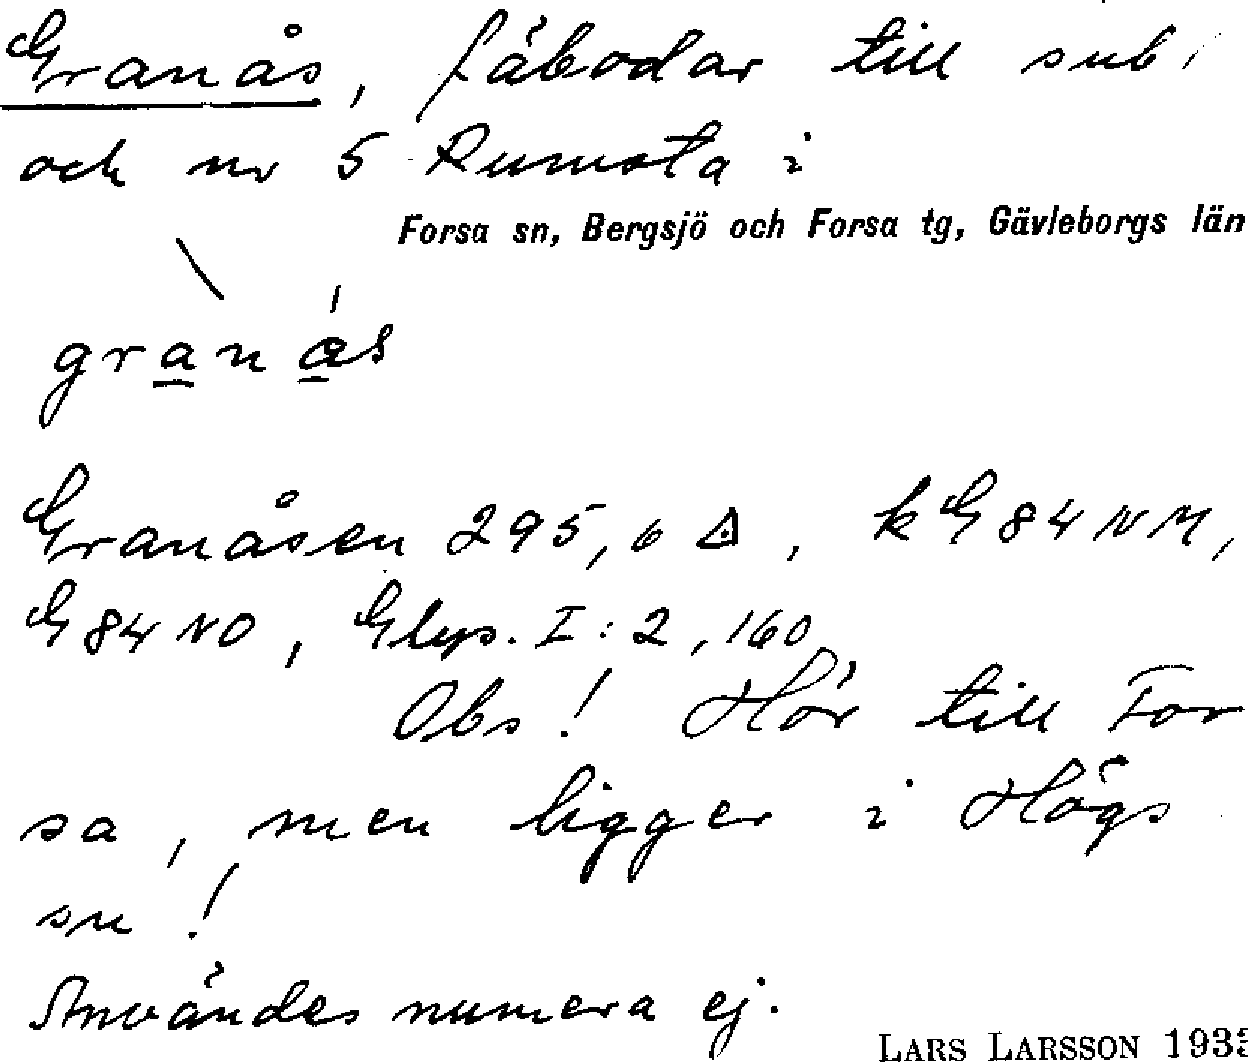 Granås, fäbodar till sub,
och nr 5 Rumsta i
Forsa sn, Bergsjö och Forsa tg, Gävleborgs län
granås
Granåsen 295,6 △, k G 84 NV,
G 84 NO, Glys. I:2, 160
Obs! Hör till For
sa, men ligger i Högs
sn!
Användes numera ej.
LARS LARSSON 193